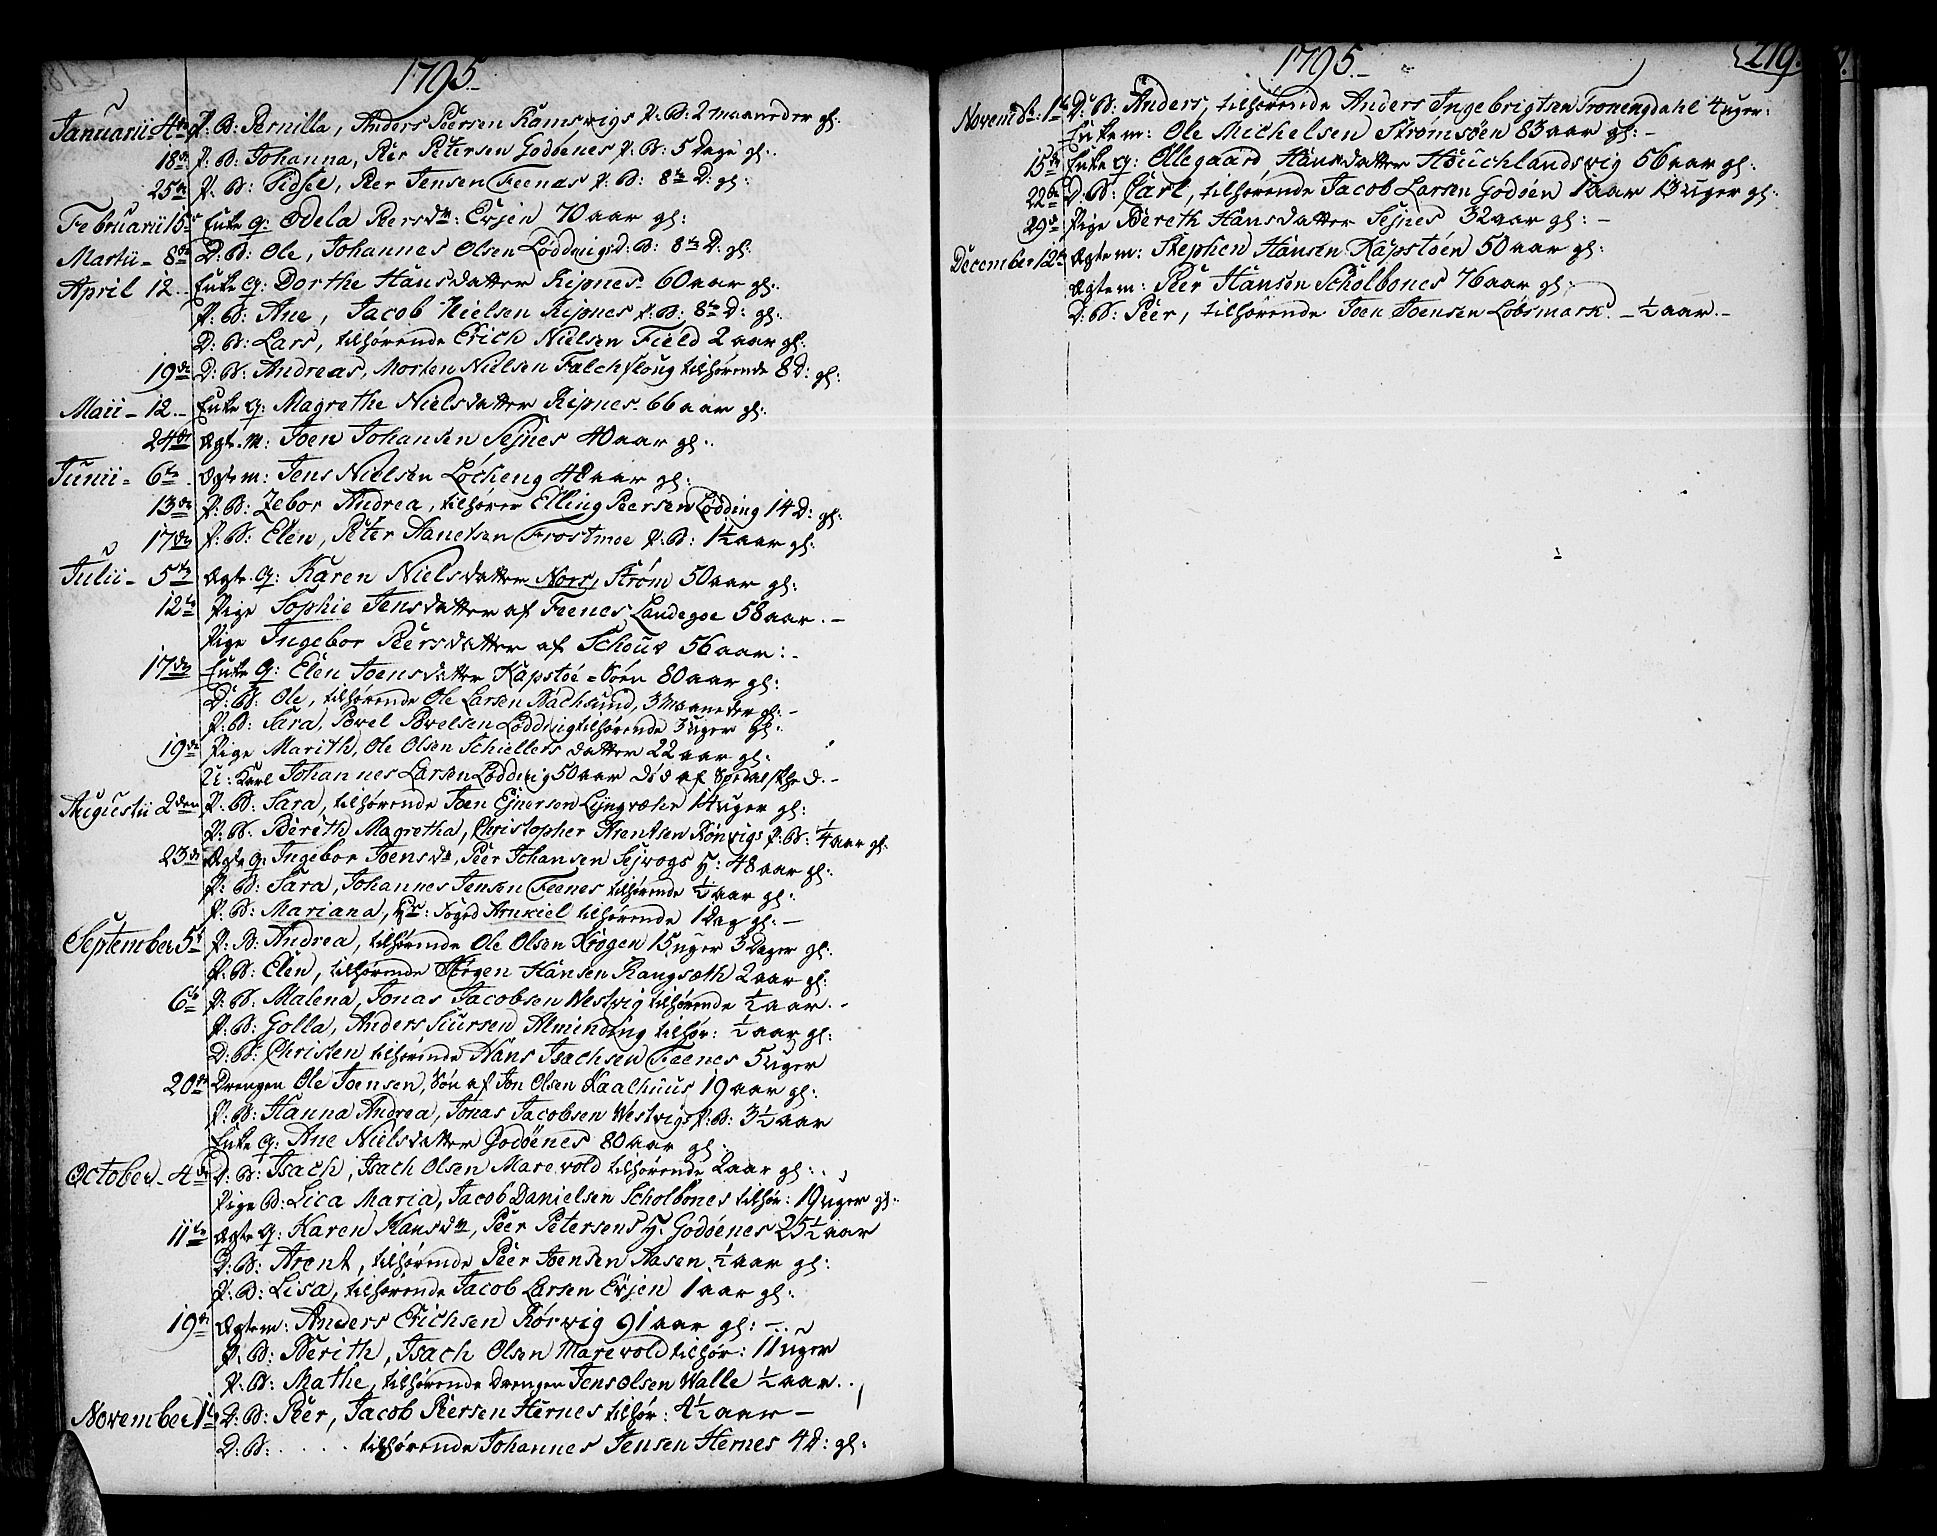 1795.
Januarii 4de P: B: Pernilla, Anders Peersen Ramswigs P: B: 2 maaneder gl:
18de P: B: Johanna, Peer Petersen Godøenes P: B: 5 Dage gl:
25de P: B: Sidsel, Peer Jensen Feenæs P: B: 8te D: gl:
Februarii 15de Enke q: Odela Peersdr: Evjen 70 aar gl:
Martii - 8de D: B: Ole, Johannes Olsen Løddings D: B: 8te D: gl:
April 12 Enke q: Dorthe Hansdatter Ripnes 60 aar gl:
P: B: Ane, Jacob Nielsen Ripnes P: B: 8te D: gl:
D: B: Lars, tilhørende Erich Nielsen Field 2 aar gl:
19de D: B: Andreas, Morten Nielsen Falchfloug tilhørende 8 D: gl:
Maii - 12 Enke q: Magrethe Nielsdatter Ripnes 66 aar gl:
24de Ægt. m: Joen Johansen Sejnes 40 aar gl:
Junii - 6te Ægte m: Jens Nielsen Løcheng 48 aar gl:
13de P: B: Zebor Andrea, tilhører Elling Peersen Lødding 14 D: gl:
17de P: B: Elen, Peter Aanetsen Frostmoe P: B: 1½ aar gl:
Julii - 5te Ægte q: Karen Nielsdatter Nors, Strøm 50 aar gl:
12te Pige Sophie Jensdatter af Feenes Landegoe 58 aar.
Pige Ingebor Peersdatter af Schouv 56 aar:
17de Enke q: Elen Joensdatter Kapstøe-Søen 80 aar gl:
D: B: Ole, tilhørende Ole Larsen Bachsund, 3 maaneder gl:
P: B: Sara, Povel Povelsen Lødding tilhørende 3 uger gl:
19de Pige Marith, Ole Olsen Schiellers datter 22 aar gl:
U: Karl Johannes Larsen Lødding 50 aar død af Spedalskhed.
Augustii 2den P: B: Sara, tilhørende Joen Ejnersen Lyngvæhr 14 uger gl:
P: B: Berith Magretha, Christopher Arentsen Rønvigs P: B: ¼ aar gl:
23de Ægte q: Ingebor Joensdr, Peer Johansen Sejvogs H: 48 aar gl:
P: B: Sara, Johannes Jensen Feenes tilhørende ½ aar gl:
P: B: Mariana, Hr: Foged Arukiel tilhørende 1 Dag gl:
September 5te P: B: Andrea, tilhørende Ole Olsen Krogen 15 uger 3 Dager gl:
P: B: Elen, tilhørende Jørgen Hansen Rangsæth 2 aar gl:
6te P: B: Malena, Jonas Jacobsen Westvig tilhørende ½ aar.
P: B: Golla, Anders Siursen Alminding tilhør: ½ aar gl:
D: B: Christen tilhørende Hans Isachsen Feenes 5 uger
20de Drengen Ole Joensen, Søn af Jon Olsen Kaalhuus 19 aar gl:
P: B: Hanna Andrea, Jonas Jacobsen Westvigs P: B: 3½ aar
Enke q: Ane Nielsdatter Godøenes 80 aar gl:
October - 4de D: B: Isach, Isach Olsen Marevold tilhørende 2 aar gl:
Pige B: Lisa Maria, Jacob Danielsen Scholbones tilhør: 19 uger gl:
11te Ægte q: Karen Hansdr, Peer Petersens H: Godøenes 25½ aar
D: B: Arent, tilhørende Peer Joensen Aasen ½ aar gl:
P: B: Lisa, tilhørende Jacob Larsen Evjen 1 aar gl:
19de Ægte m: Anders Erichsen Rørvig 91 aar gl:
P: B: Berith, Isach Olsen Marevold tilhør: 11 uger
P: B: Mathe, tilhørende Drengen Jens Olsen Walle ½ aar.
November 1te D: B: Peer, Jacob Peersen Hernes tilhør: 4½ aar
D: B: . . . . . tilhørende Johannes Jensen Hernes 4 D: gl:
1795.
219.
Novemb: 1te D: B: Anders, tilhørende Anders Ingebrigtsen Troningdahl 4 uger:
Enke m: Ole Michelsen Strømsøen 83 aar gl:
15de Enke q: Ollegaard Hansdatter Houchlandsvig 56 aar gl:
22de D: B: Carl, tilhørende Jacob Larsen Godøen 1 aar 13 uger gl:
29de Pige Bereth Hansdatter Sejnes 32 aar gl:
December 12te Ægte m: Stephen Hansen Kapstøen 50 aar gl:
Ægte m: Peer Hansen Scholbones 76 aar gl:
D: B: Peer, tilhørende Joen Joensen Løbsmark ½ aar.